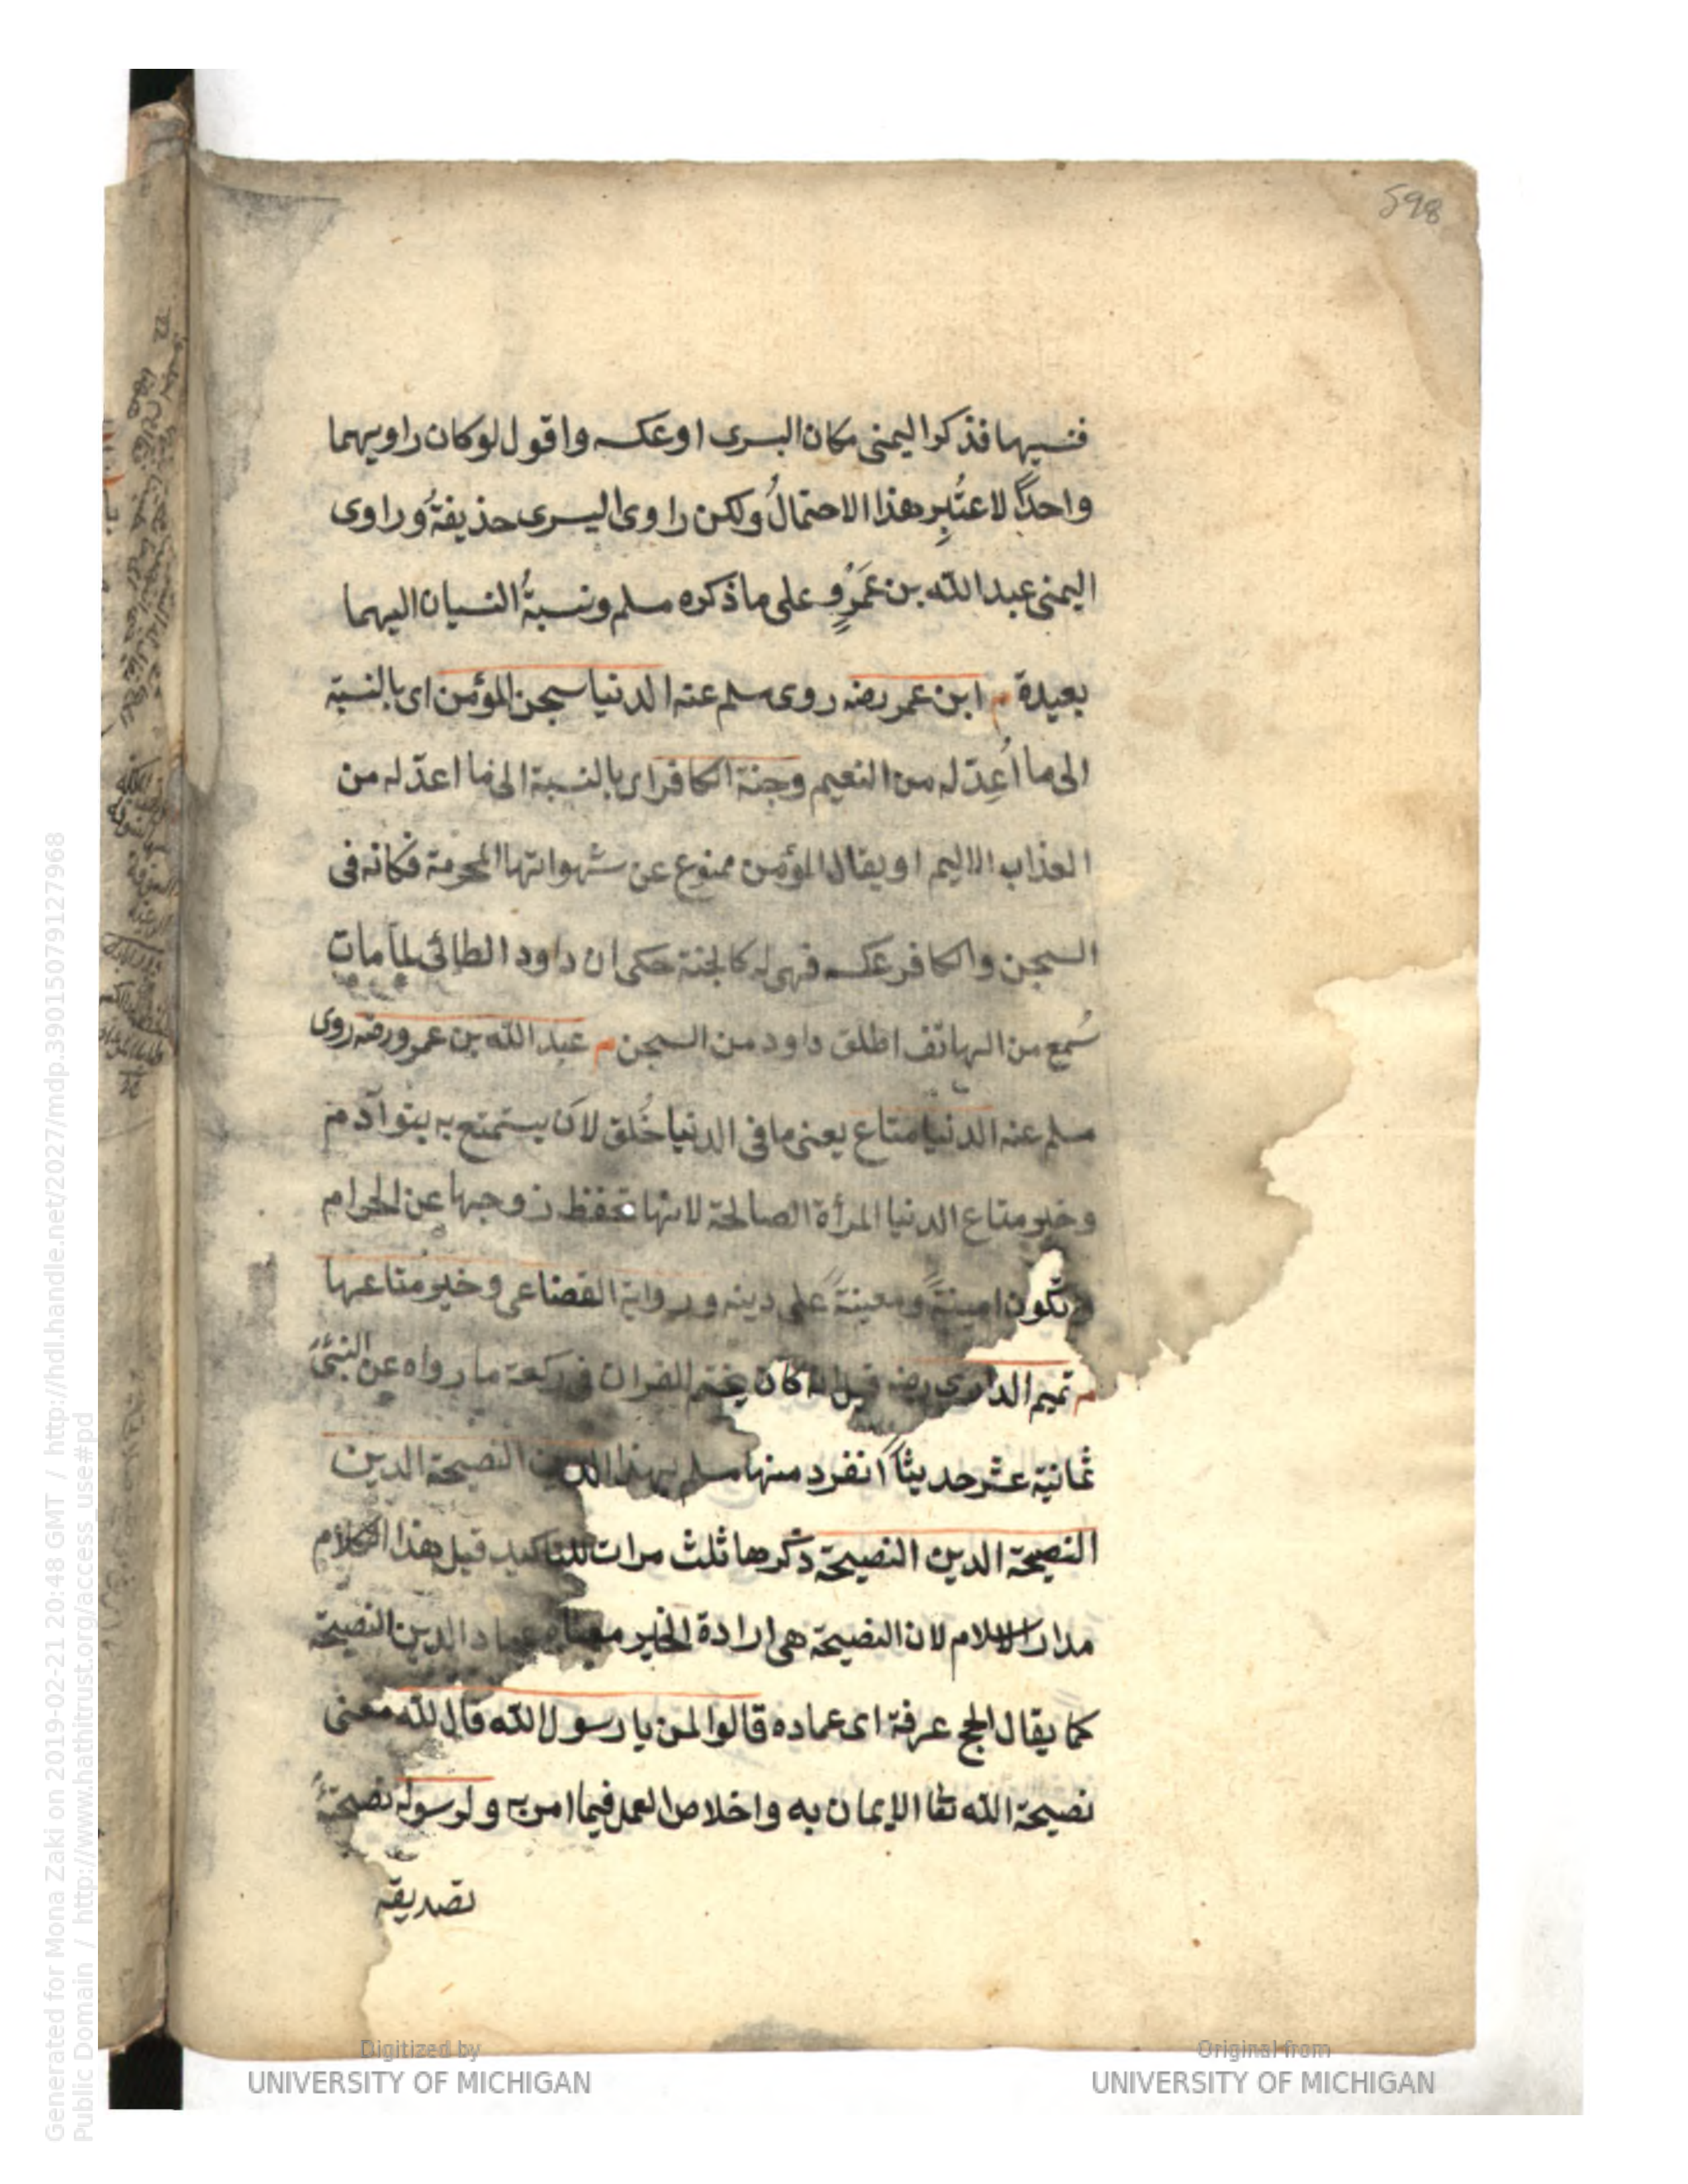 598
فنسيها فذكر اليمنى مكان اليسرى او عكسه واقول لو كان راويهما
واحدًا لاعتُبِر هذا الاحتمالُ ولكن راوى اليسرى حذيفةُ وراوى
اليمنى عبد الله بن عَمْرٍو على ما ذكره مسلم ونسبةُ النسيان اليهما
بعيدة م ابن عمر رضه روى مسلم عنه الدنيا سجن المؤمن اى بالنسبة
الى ما اُعِدّ له من النعيم وجنة الكافر اى بالنسبة الى ما اعدّ له من
العذاب الاليم او يقال المؤمن ممنوع عن شهواتها المحرمة فكانه فى
السجن والكافر عكسه فهى له كالجنة حكى ان داود الطائى لما مات
سُمع من الهاتف اطلق داود من السجن م عبد الله بن عمرو رضه روى
مسلم عنه الدنيا متاع يعنى ما فى الدنيا خُلق لان يستمتع به بنوا آدم
وخير متاع الدنيا المرأة الصالحة لانها تحفظ زوجها عن الحرام
وتكون امينةً ومعينةً على دينه ورواية القضاعى وخير متاعها
م تميم الدارى رضه قيل انه كان يختم القران فى ركعة ما رواه عن النبىّ
ثمانية عشر حديثًا انفرد منها مسلم بهذا الدين النصيحة الدين
النصيحة الدين النصيحة ذكرها ثلث مرات للتاكيد قيل هذا الكلام
مدار الاسلام لان النصيحة هى ارادة الخير معناه عماد الدين النصيحة
كما يقال الحج عرفة اى عماده قالوا لمن يا رسول الله قال لله معنى
نصيحة الله تعا الايمان به واخلاص العمل فيما امر به ولرسوله نصيحة
تصديقه
Digitized by
UNIVERSITY OF MICHIGAN
Original from
UNIVERSITY OF MICHIGAN
Generated for Mona Zaki on 2019-02-21 20:48 GMT / http://hdl.handle.net/2027/mdp.39015079127968
Public Domain / http://www.hathitrust.org/access_use#pd